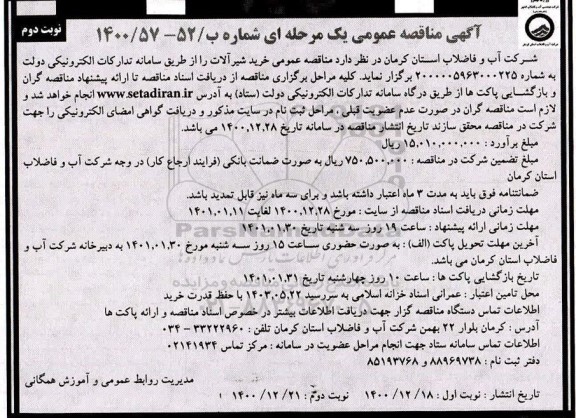 نوبت دوم
آگهی مناقصه عمومی یک مرحله ای شماره ب/۵۲- ۱۴۰۰/۵۷
شرکت آب و فاضلاب استان کرمان در نظر دارد مناقصه عمومی خرید شیرآلات را از طریق سامانه تدارکات الکترونیکی دولت
به شماره ۲۰۰۰۰۰۵۹۶۳۰۰۰۲۲۵ برگزار نماید. کلیه مراحل برگزاری مناقصه از دریافت اسناد مناقصه تا ارائه پیشنهاد مناقصه گران
و بازگشایی پاکت ها از طریق درگاه سامانه تدارکات الکترونیکی دولت (ستاد) به آدرس www.setadiran.ir انجام خواهد شد و
لازم است مناقصه گران در صورت عدم عضویت قبلی، مراحل ثبت نام در سایت مذکور و دریافت گواهی امضای الکترونیکی را جهت
شرکت در مناقصه محقق سازند تاریخ انتشار مناقصه در سامانه تاریخ ۱۴۰۰.۱۲.۲۸ می باشد.
مبلغ برآورد : ۱۵.۰۱۰.۰۰۰.۰۰۰ ریال
مبلغ تضمین شرکت در مناقصه : ۷۵۰.۵۰۰.۰۰۰ ریال به صورت ضمانت بانکی (فرایند ارجاع کار) در وجه شرکت آب و فاضلاب
استان کرمان
ضمانتنامه فوق باید به مدت ۳ ماه اعتبار داشته باشد و برای سه ماه نیز قابل تمدید باشد.
مهلت زمانی دریافت اسناد مناقصه از سایت : مورخ ۱۴۰۰.۱۲.۲۸ لغایت ۱۴۰۱.۰۱.۱۱
مهلت زمانی ارائه پیشنهاد : ساعت ۱۹ روز سه شنبه تاریخ ۱۴۰۱.۰۱.۳۰
آخرین مهلت تحویل پاکت (الف) : به صورت حضوری ساعت ۱۵ روز سه شنبه مورخ ۱۴۰۱.۰۱.۳۰ به دبیرخانه شرکت آب و
فاضلاب استان کرمان می باشد.
تاریخ بازگشایی پاکت ها : ساعت ۱۰ روز چهارشنبه تاریخ ۱۴۰۱.۰۱.۳۱
محل تامین اعتبار : عمرانی اسناد خزانه اسلامی به سررسید ۱۴۰۳.۰۵.۲۲ با حفظ قدرت خرید
اطلاعات تماس دستگاه مناقصه گزار جهت دریافت اطلاعات بیشتر در خصوص اسناد مناقصه و ارائه پاکت ها
آدرس : کرمان بلوار ۲۲ بهمن شرکت آب و فاضلاب استان کرمان تلفن : ۳۳۲۲۲۹۶۰ - ۰۳۴
اطلاعات تماس سامانه ستاد جهت انجام مراحل عضویت در سامانه : مرکز تماس ۰۲۱۴۱۹۳۴
دفتر ثبت نام : ۸۸۹۶۹۷۳۸ و ۸۵۱۹۳۷۶۸
مدیریت روابط عمومی و آموزش همگانی
تاریخ انتشار : نوبت اول : ۱۸ /۱۲ /۱۴۰۰ نوبت دوم : ۲۱ /۱۲ /۱۴۰۰